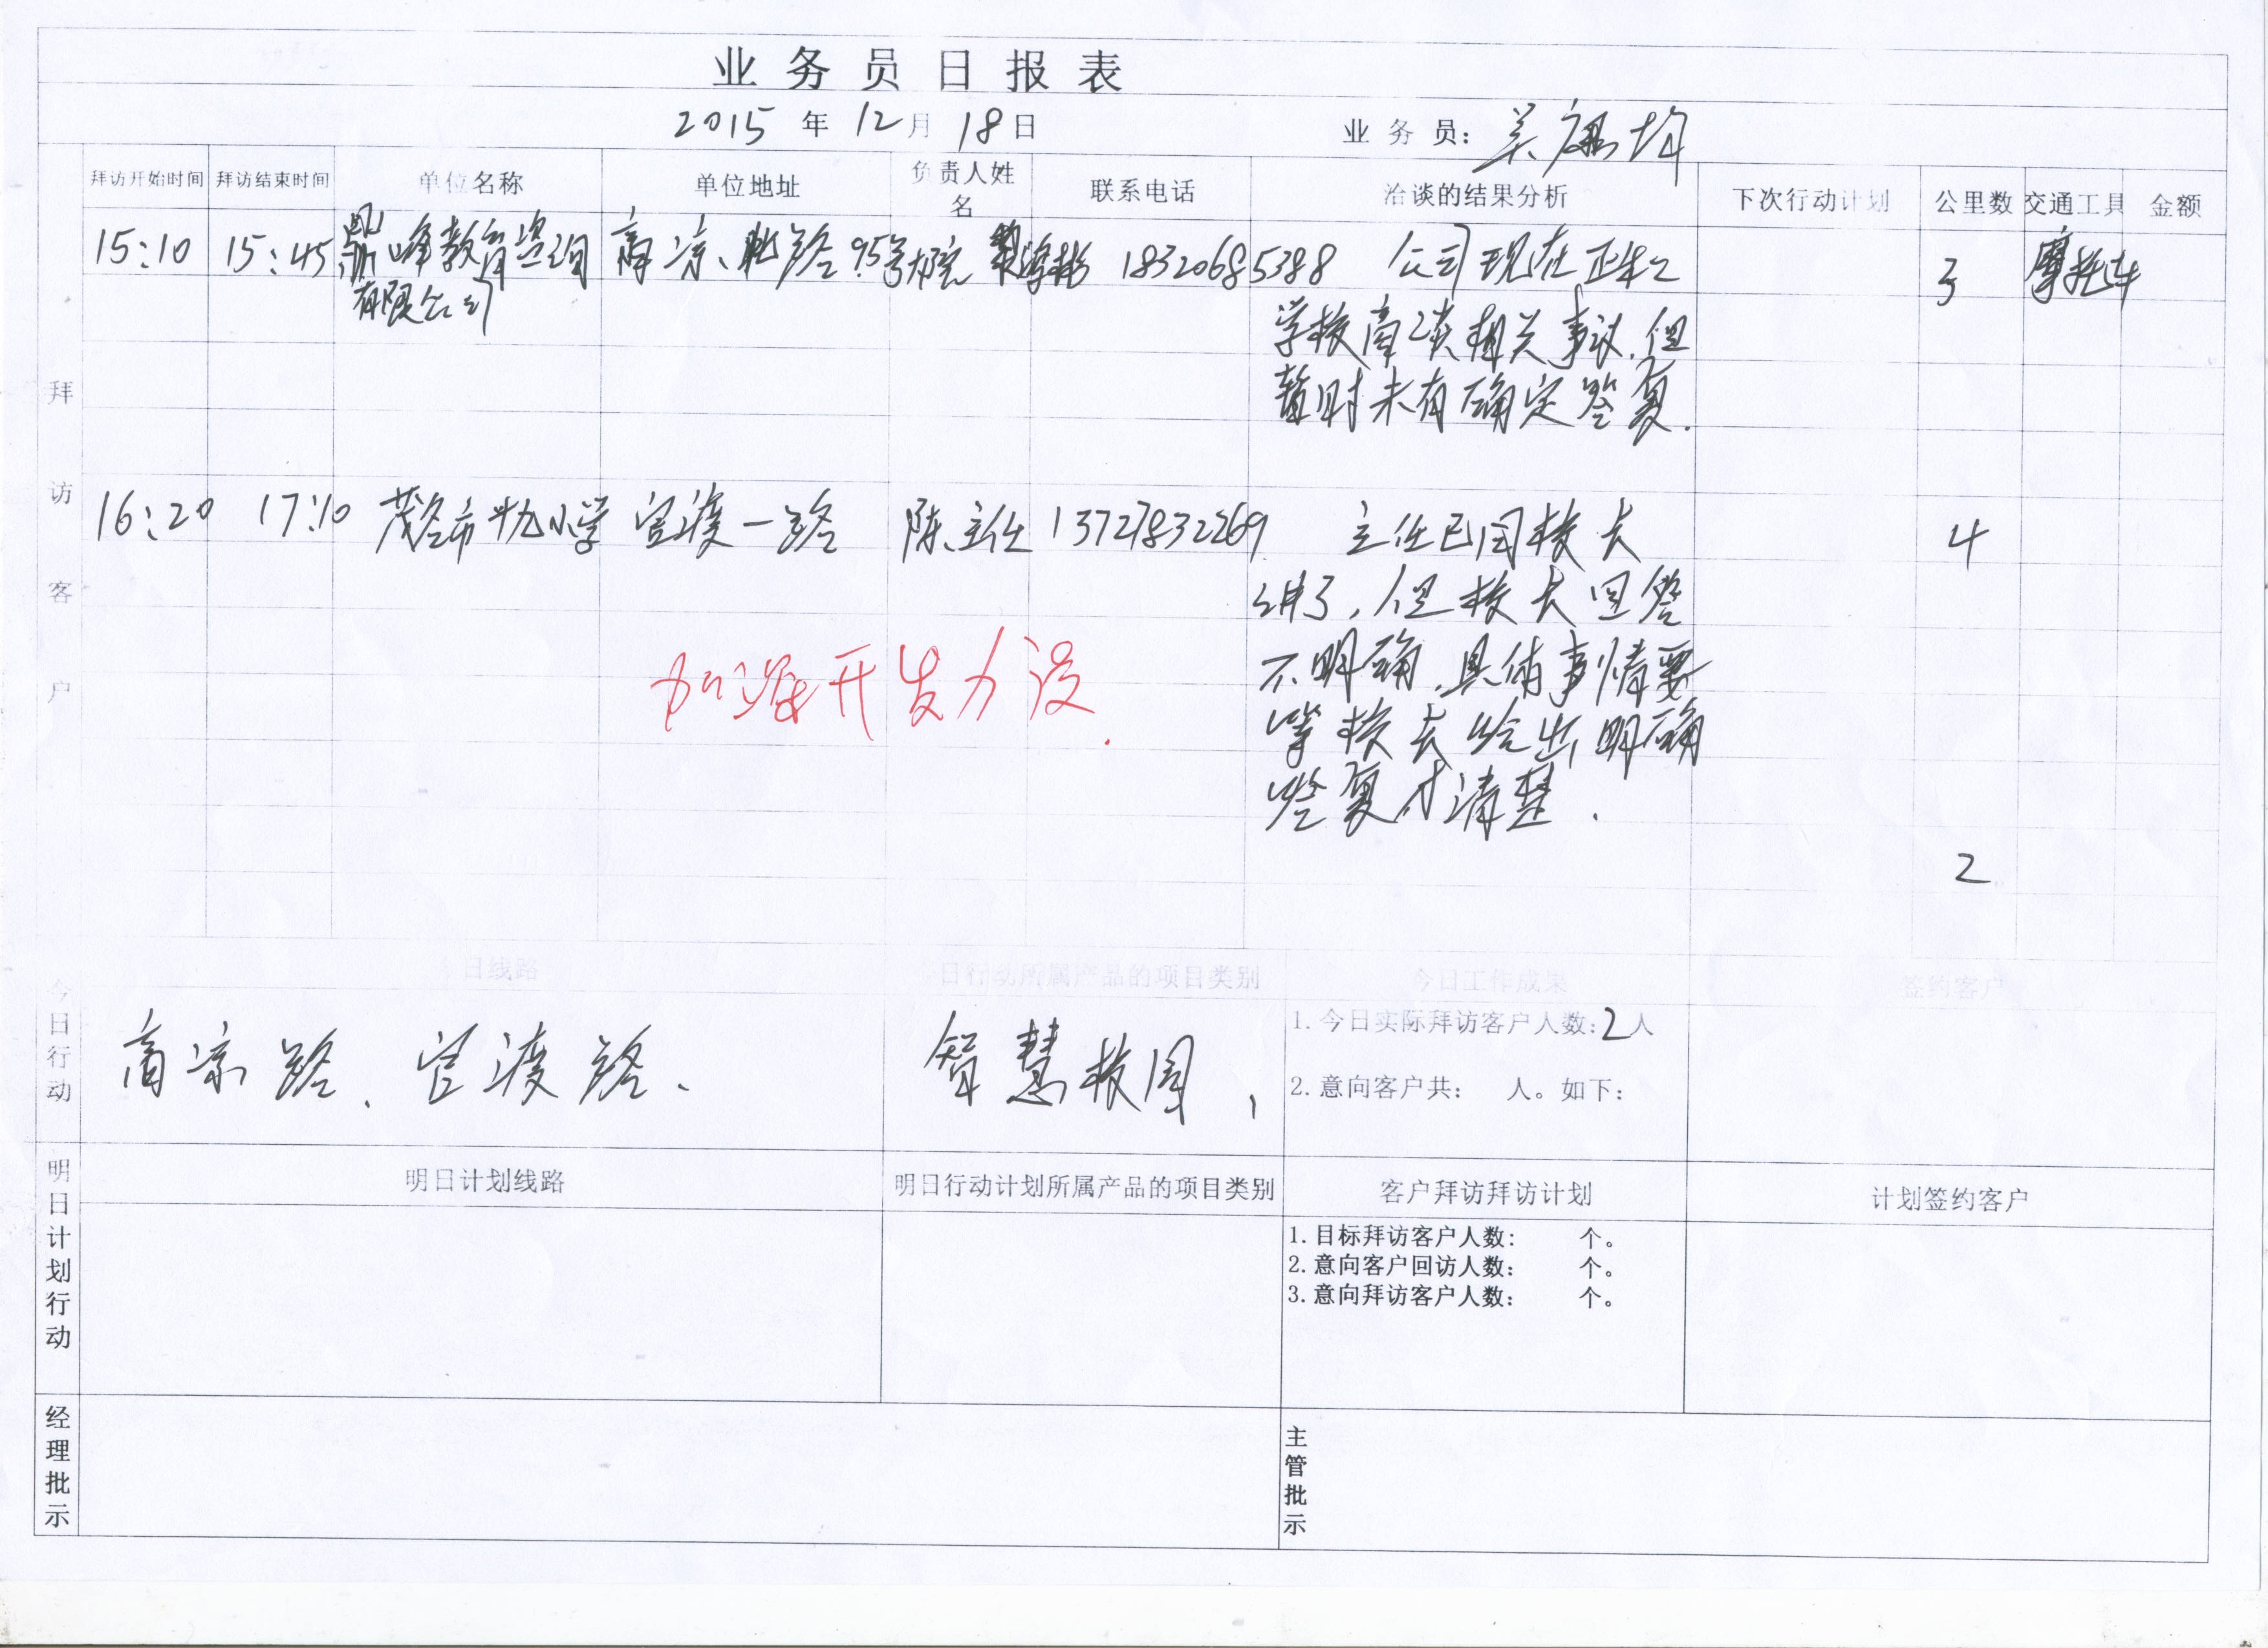 业务员日报表
2015年12月18日 业务员:
拜访开始时间 拜访结束时间 单位名称 单位地址 负责人姓名 联系电话 洽谈的结果分析 下次行动计划 公里数 交通工具 金额
拜访客户
15:10 15:45 鼎峰教育咨询 高凉北路95号大院 18320685388 公司现在正和 3 摩托车
有限公司
学校商谈相关事议.但
暂时未有确定答复.
16:20 17:10 茂名市十九小学 官渡一路 陈主任 13727832269 主任已同校长 4
讲了,但校长回答
不明确.具体事情要
等校长给出明确
答复才清楚.
加强开发力度.
2
今日行动
日线路 日行动所属产品的项目类别 今日工作成果 签约客户
高凉路、官渡路、 智慧校园,
1.今日实际拜访客户人数:2人
2.意向客户共: 人。如下:
明日计划行动
明日计划线路 明日行动计划所属产品的项目类别 客户拜访拜访计划 计划签约客户
1.目标拜访客户人数: 个。
2.意向客户回访人数: 个。
3.意向拜访客户人数: 个。
经理批示 主管批示